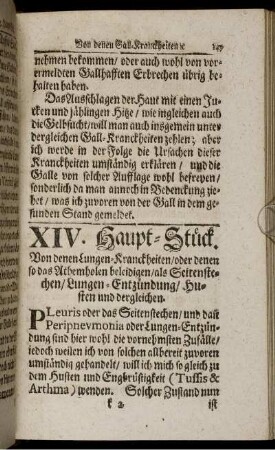 Von denen Gall-Kranckheiten ꝛc 147
nehmen bekommen / oder auch wohl von vor-
ermeldten Gallhafften Erbrechen übrig be-
halten haben.
Das Ausschlagen der Haut mit einen Ju-
cken und jählingen Hitze / wie ingleichen auch
die Gelbsucht / will man auch insgemein unter
dergleichen Gall-Kranckheiten zehlen; aber
ich werde in der Folge die Ursachen dieser
Kranckheiten umständig erklären / und die
Galle von solcher Aufflage wohl befreyen /
sonderlich da man annoch in Bedenckung zie-
het / was ich zuvoren von der Gall in dem ge-
sunden Stand gemeldet.
XIV. Haupt-Stück.
Von denen Lungen-Kranckheiten / oder denen
so das Athemholen beleidigen / als Seitenste-
chen / Lungen-Entzündung / Hu-
sten und dergleichen.
PLeuris oder das Seitenstechen / und dañ
Peripnevmonia oder Lungen-Entzün-
dung sind hier wohl die vornehmsten Zufälle /
jedoch weilen ich von solchen allbereit zuvoren
umständig gehandelt / will ich mich so gleich zu
dem Husten und Engbrüstigkeit (Tussis &
Arthma) wenden. Solcher Zustand nun
k 2 ist